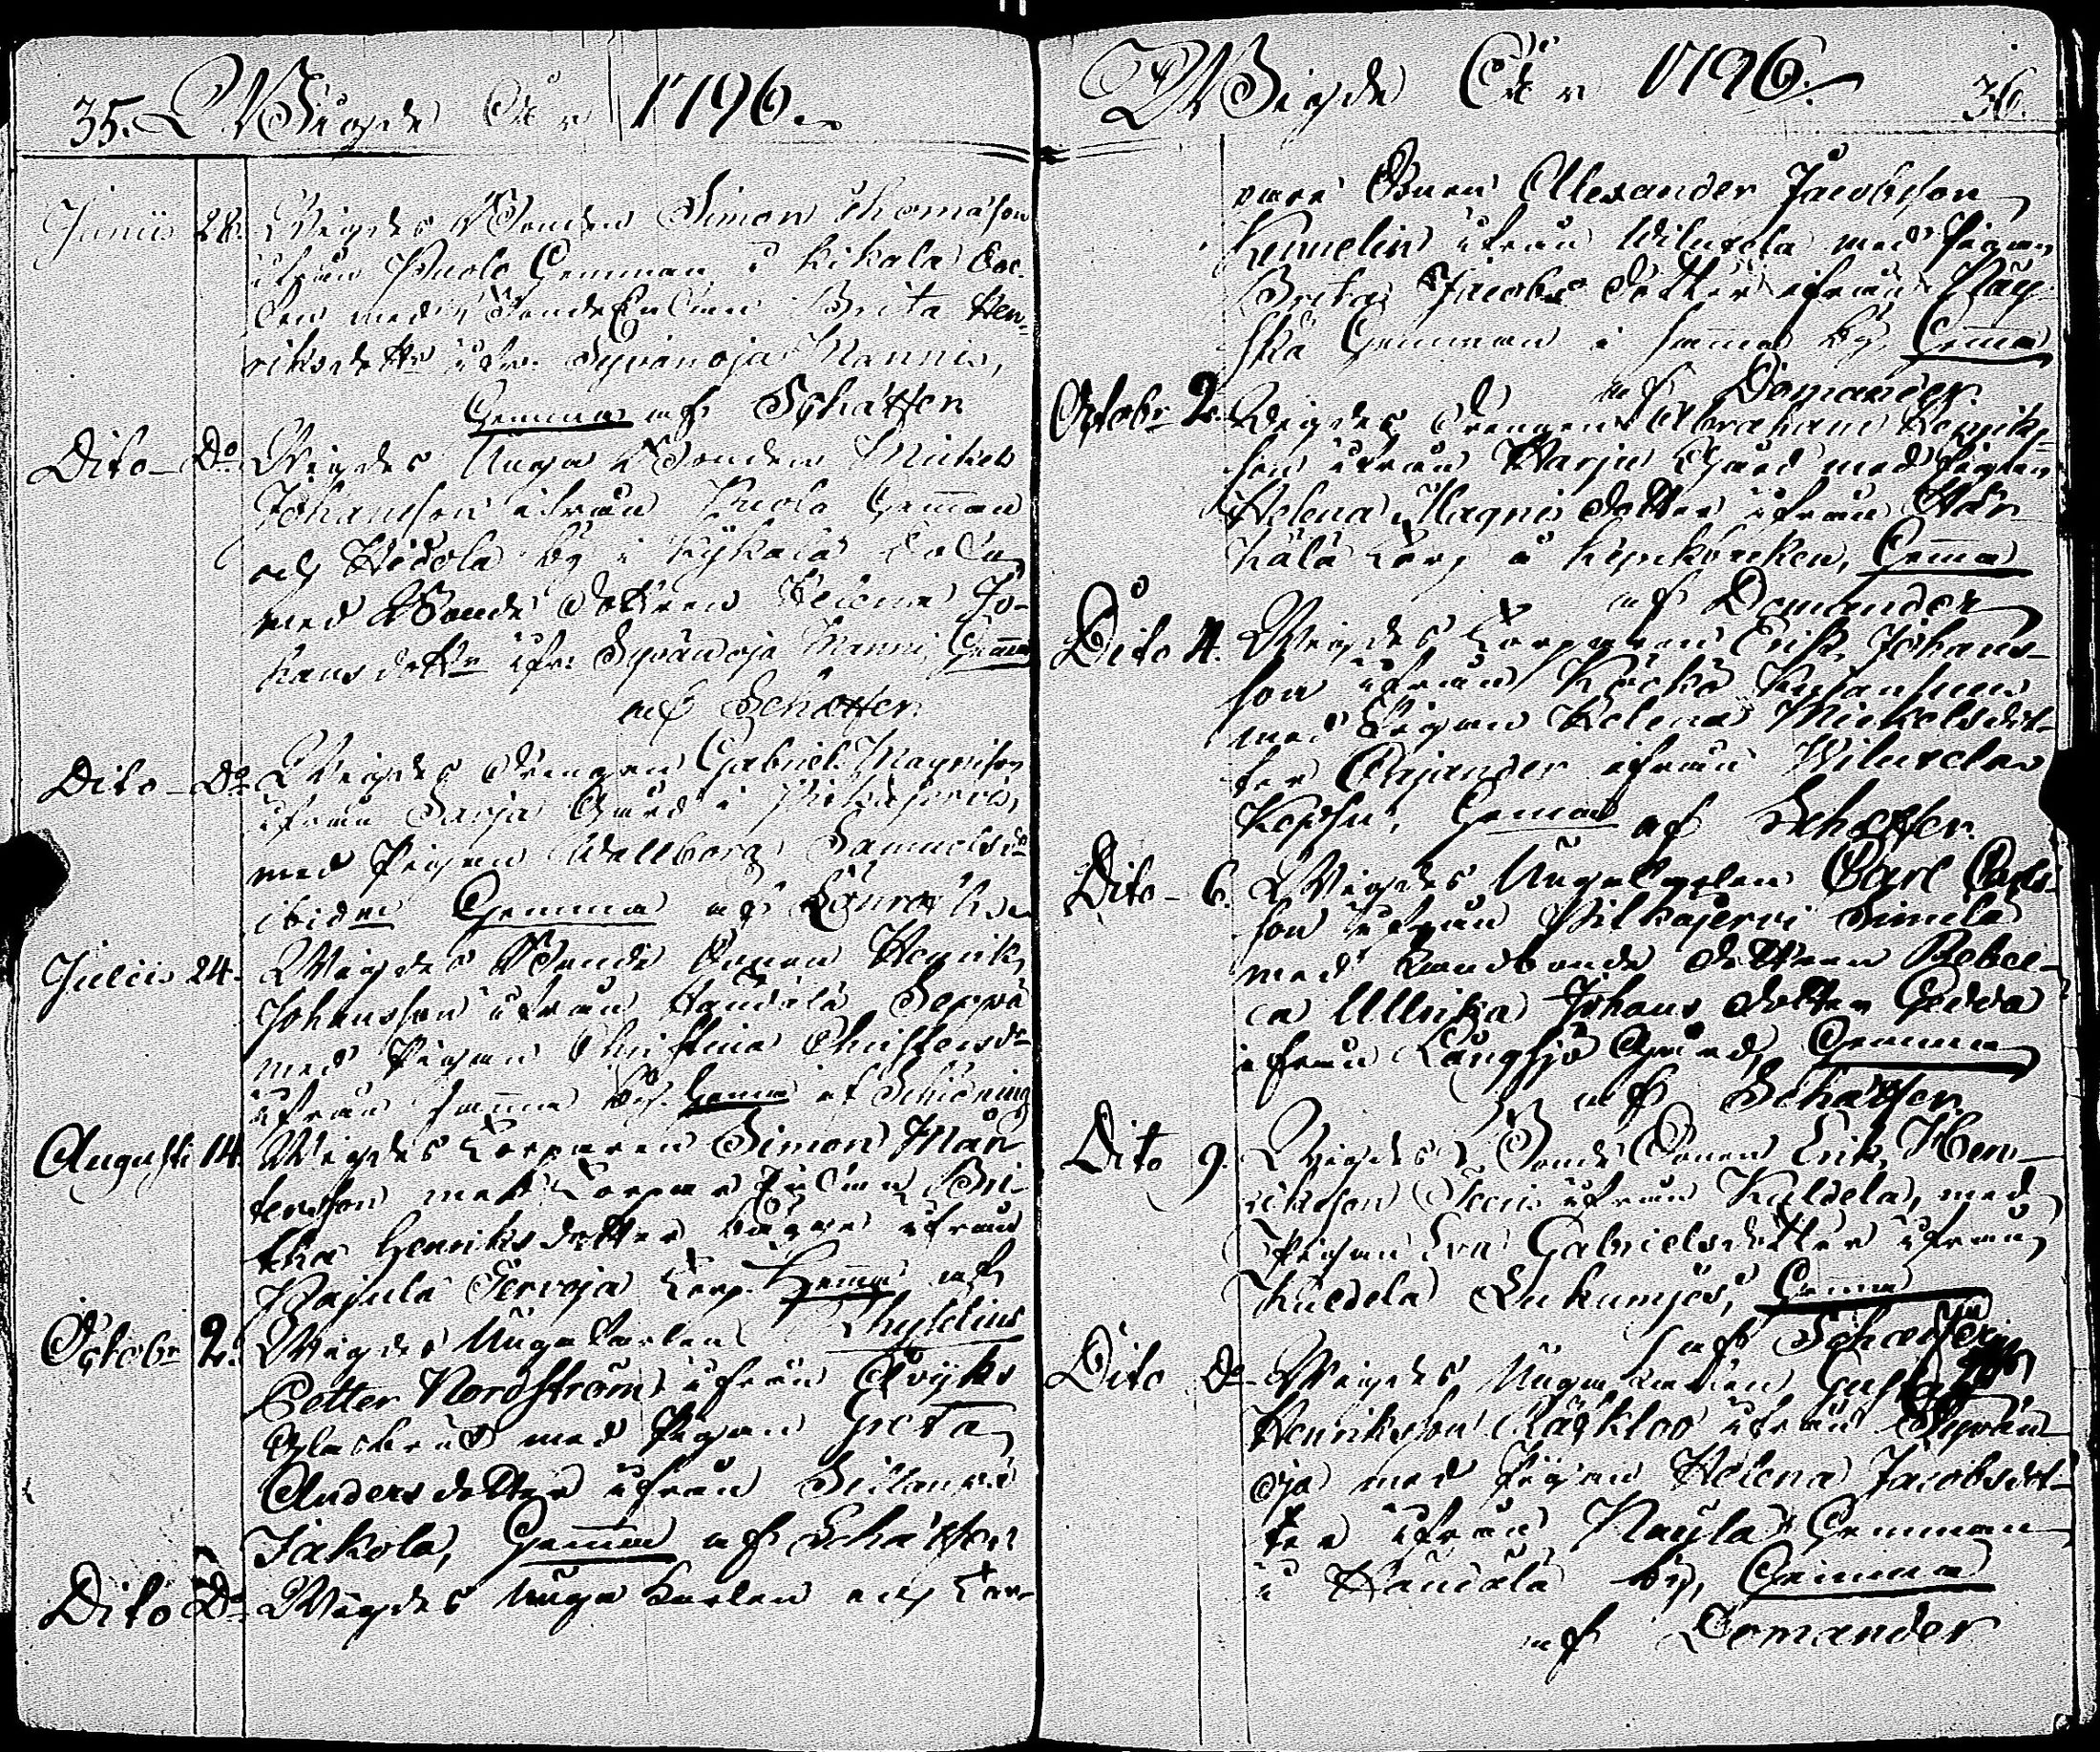 35. Wigde Åhr 1796.
Junii 28. Wigdes Bonden Simon Thomasson
ifrån Kuolo Hemman i Kikala Soc-
ken med Bonde Enkan Brita Hen-
riksdottr ifr. Syvänoja Manni,
Hemma af Schæffer
Dito - Do Wigdes Unga Bonden Mickel
Johansson ifrån Kuolo Hemman
och Hidola by i Kijkala Sockn
med Bonde Dottren Helena Jo-
hansdottr ifr. Syvänoja Manni, Hemma
af Schæffer.
Dito - Do Wigdes Drengen Gabriel Magnisson
ifrån Sarja Gård i
med Pigan Wallborg Samuelsdr
ibidem Hemma af Lönroth
Julii 24. Wigdes Bonde Sonen Henrik
Johansson ifrån Haudola Seppä
med Pigan Christina Christersdr
ifrån samma by. Hemma af Schiöning
Augusti 14. Wigdes Torparen Simon Mår
tensson med Torpare Enkan Bri-
tha Henriksdotter begge ifrån
Rajula Torp. Hemma af
Thyleius
Octobr 2. Wigdes Unga Karlen
Petter Nordström ifrån Åvijks
Glasbruk med Pigan Greta
Andersdotter ifrån Sillanpä
Jakola, Hemma af Schæffer
Dito Do Wigdes Unga Karlen och Tor-
Wigde Åhr 1796. 36.
pare Sonen Alexander Jacobsson
Humelin ifrån Wiluxela med Pigan
Brita Jacobs Dotter ifrån
Hemman i samma by Hemma
af Domander.
Octobr 2. Wigdes Drengen Abraham Henriks-
son ifrån Harju Gård med Pigan
Helena Magnis Dotter ifrån Här
kälä Torp å Kyrkbacken, Hemma
af Domander
Dito 4. Wigdes Torparen Erik Johans-
son ifrån
med Pigan Helena Mickelsdot-
ter Cajander ifrån Wiluxela
Hemma af Schæffer.
Dito - 6. Wigdes Unga Karlen Carl Carls-
son ifrån Pilkajervi Simila
med Landbonde Dottren Rebec-
ca Ullrika Johans Dotter Gedda
ifrån Långsjö Gård, Hemma
af Schæffer
Dito 9. Wigdes Bonde Sonen Erik Hen-
riksson ifrån Kuldela, med
Pigan Eva Gabrielsdotter ifrån
Kuldela Hemma
af Schæffer
Dito Do Wigdes Unga Karlen
Henriksson Räfkloo ifrån Syvän
oja med Pigan Helena Jacobsdot-
ter ifrån Naula Hemman
i Haudala by, Hemma
af Domander